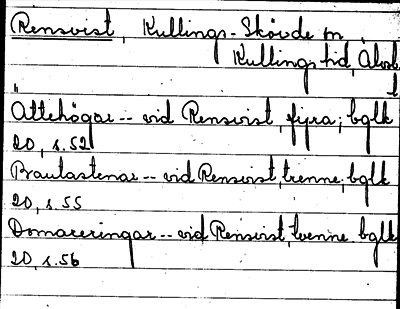 Rensvist, Kullings-Skövde sn,
Kullings hd, Älvsb
l
Ättehögar -- vid Rensvist, fyra; bglk
20, s. 52
Brautastenar -- vid Rensvist, trenne, bglk
20, s. 55
Domareringar -- vid Rensvist, tvenne bglk
20, s. 56